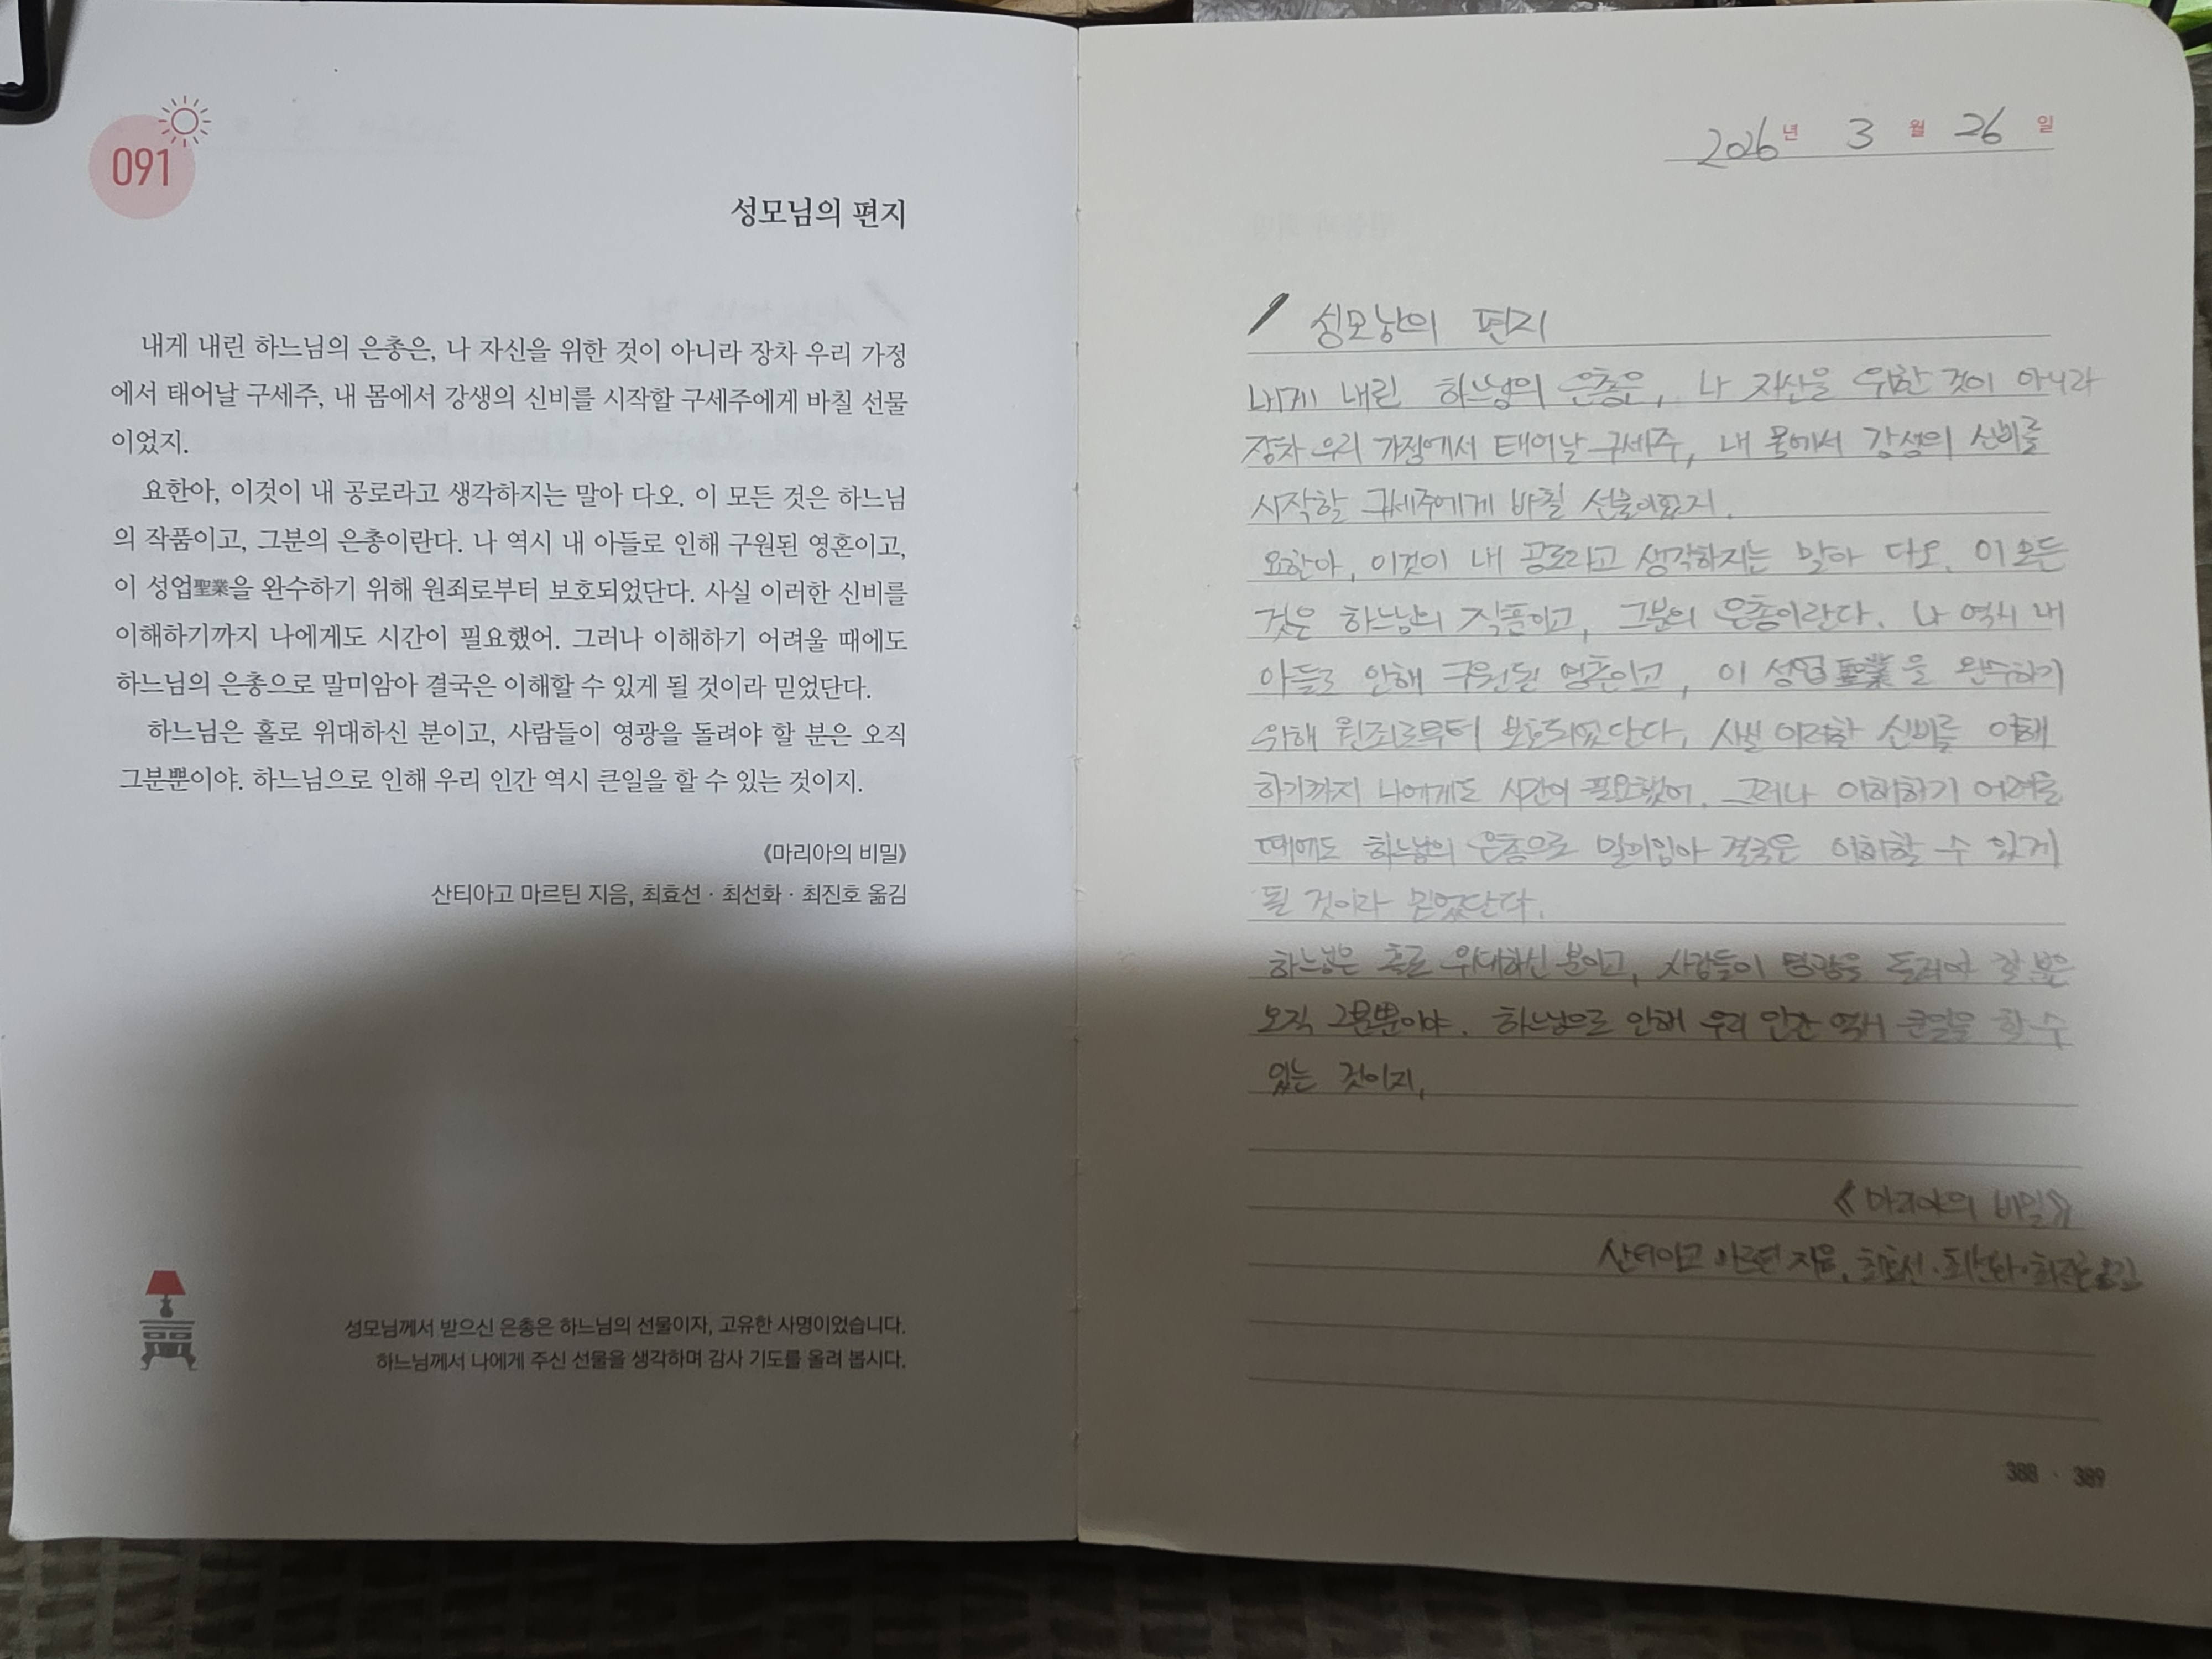 091
성모님의 편지
내게 내린 하느님의 은총은, 나 자신을 위한 것이 아니라 장차 우리 가정
에서 태어날 구세주, 내 몸에서 강생의 신비를 시작할 구세주에게 바칠 선물
이었지.
요한아, 이것이 내 공로라고 생각하지는 말아 다오. 이 모든 것은 하느님
의 작품이고, 그분의 은총이란다. 나 역시 내 아들로 인해 구원된 영혼이고,
이 성업聖業을 완수하기 위해 원죄로부터 보호되었단다. 사실 이러한 신비를
이해하기까지 나에게도 시간이 필요했어. 그러나 이해하기 어려울 때에도
하느님의 은총으로 말미암아 결국은 이해할 수 있게 될 것이라 믿었단다.
하느님은 홀로 위대하신 분이고, 사람들이 영광을 돌려야 할 분은 오직
그분뿐이야. 하느님으로 인해 우리 인간 역시 큰일을 할 수 있는 것이지.
《마리아의 비밀》
산티아고 마르틴 지음, 최효선 · 최선화 · 최진호 옮김
성모님께서 받으신 은총은 하느님의 선물이자, 고유한 사명이었습니다.
하느님께서 나에게 주신 선물을 생각하며 감사 기도를 올려 봅시다.
2026년 3월 26일
성모님의 편지
내게 내린 하느님의 은총은, 나 자신을 위한 것이 아니라
장차 우리 가정에서 태어날 구세주, 내 몸에서 강생의 신비를
시작할 구세주에게 바칠 선물이었지.
요한아, 이것이 내 공로라고 생각하지는 말아 다오. 이 모든
것은 하느님의 작품이고, 그분의 은총이란다. 나 역시 내
아들로 인해 구원된 영혼이고, 이 성업聖業을 완수하기
위해 원죄로부터 보호되었단다. 사실 이러한 신비를 이해
하기까지 나에게도 시간이 필요했어. 그러나 이해하기 어려울
때에도 하느님의 은총으로 말미암아 결국은 이해할 수 있게
될 것이라 믿었단다.
하느님은 홀로 위대하신 분이고, 사람들이 영광을 돌려야 할 분은
오직 그분뿐이야. 하느님으로 인해 우리 인간 역시 큰일을 할 수
있는 것이지.
《마리아의 비밀》
산티아고 마르틴 지음, 최효선 · 최선화 · 최진호 옮김
388 · 389